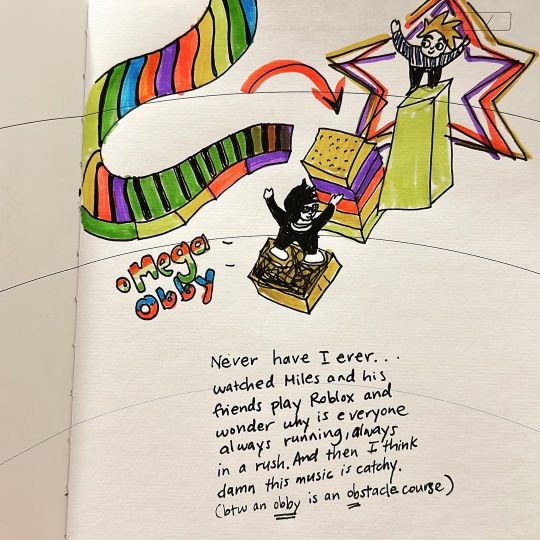 omega
obby
Never have I ever...
watched Miles and his
friends play Roblox and
wonder why is everyone
always running, always
in a rush. And then I think
damn this music is catchy.
(btw an obby is an obstacle course)